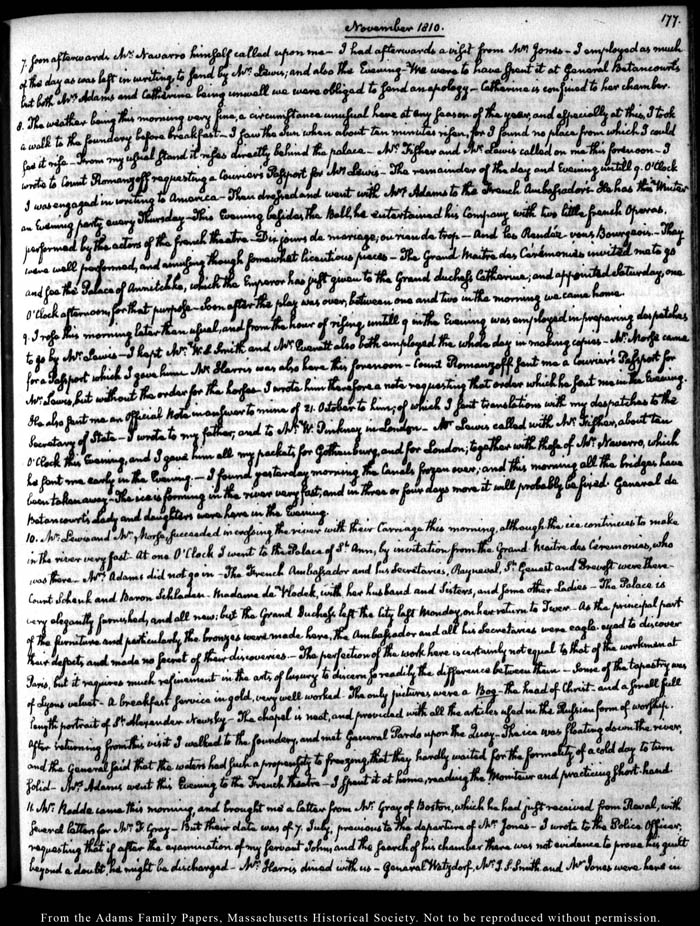 November 1810.
177.
7. soon afterwards Mr. Navarro himself called upon me – I had afterwards a visit from Mr. Jones – I employed as much
of the day as was left in writing, to send by Mr. Lewis; and also the Evening – We were to have spent it at General Betancourt's
but both Mrs. Adams and Catherine being unwell we were obliged to send an apology – Catherine is confined to her chamber.
8. The weather being this morning very fine, a circumstance unusual here at any season of the year, and especially at this, I took
a walk to the foundery before breakfast – I saw the Sun when about ten minutes risen, for I found no place from which I could
see it rise. From my usual stand it rises directly behind the palace – Mr. Fisher and Mr. Lewis called on me this forenoon – I
wrote to Count Romanzoff requesting a Courier's Passport for Mr. Lewis – The remainder of the day and Evening untill 9. O'Clock
I was engaged in writing to America – Then dressed and went with Mrs. Adams to the French Ambassador's – He has this Winter
an Evening party every Thursday – This Evening besides the Ball, he entertained his Company with two little french Operas,
performed by the actors of the french theatre – Dix jours de mariage, ou rien de trop – And Les Rendez-vous Bourgeois – They
were well performed, and amusing though somewhat licentious pieces – The Grand Maitre des Cérémonies invited me to go
and see the Palace of Annitchke, which the Emperor has just given to the Grand duchess Catharine; and appointed Saturday, one
O'Clock afternoon, for that purpose – Soon after the play was over, between one and two in the morning we came home.
9. I rose this morning later than usual, and from the hour of rising untill 9 in the Evening was employed in preparing despatches
to go by Mr. Lewis – I kept Mr. W. S. Smith and Mr. Everett also both employed the whole day in making copies – Mr. Morse came
for a Passport which I gave him – Mr. Harris was also here this forenoon – Count Romanzoff sent me a Courier's Passport for
Mr. Lewis, but without the order for the horses – I wrote him therefore a note requesting that order which he sent me in the Evening.
He also sent me an Official Note in answer to mine of 21. October to him; of which I sent translations with my despatches to the
Secretary of State – I wrote to my father, and to Mr. W. Pinkney in London – Mr. Lewis called with Mr. Fisher, about ten
O'Clock this Evening, and I gave him all my packets for Gothenburg, and for London; together with those of Mr. Navarro, which
he sent me early in the Evening – I found yesterday morning the Canals frozen over; and this morning all the bridges have
been taken away – The ice is forming in the river very fast, and in three or four days more it will probably be fixed. General de
Betancourt's Lady and daughters were here in the Evening.
10. Mr. Lewis and Mr. Morse, succeeded in crossing the river with their Carriage this morning, although the ice continues to make
in the river very fast – At one O'Clock I went to the Palace of St. Ann, by invitation from the Grand Maitre des Ceremonies, who
was there – Mrs. Adams did not go in – The French Ambassador and his Secretaries, Rayneval, St. Genest and Prevost were there –
Count Schenk and Baron Schladen – Madame de Vlodek, with her husband and Sisters, and some other Ladies – The Palace is
very elegantly furnished, and all new; but the Grand Duchess left the City last Monday, on her return to Twer – As the principal part
of the furniture and particularly the bronzes were made here, the Ambassador and all his Secretaries were eagle-eyed to discover
their defects, and made no secret of their discoveries – The perfection of the work here is certainly not equal to that of the workmen at
Paris, but it requires much refinement in the arts of luxury to discern so readily the difference between them – Some of the tapestry was
of Lyons velvet – A breakfast service in gold, very well worked. The only pictures were a Bog – the head of Christ – and a small full
length portrait of St. Alexander Newsky – The chapel is neat, and provided with all the articles used in the Russian form of worship.
After returning from this visit I walked to the foundery, and met General Pardo upon the Quay – The ice was floating down the river,
and the General said that the waters had such a propensity to freezing, that they hardly waited for the formality of a cold day to turn
solid – Mrs. Adams went this Evening to the French theatre – I spent it at home, reading the Moniteur and practicing short-hand.
11. Mr. Rodde came this morning, and brought me a letter from Mr. Gray of Boston, which he had just received from Reval, with
several letters for Mr. F. Gray – But their date was of 7. July, previous to the departure of Mr. Jones – I wrote to the Police Officer;
requesting that if after the examination of my Servant John, and the search of his chamber there was not evidence to prove his guilt
beyond a doubt, he might be discharged – Mr. Harris dined with us – General Watzdorf, Mr. J. S. Smith and Mr. Jones were here in
From the Adams Family Papers, Massachusetts Historical Society. Not to be reproduced without permission.